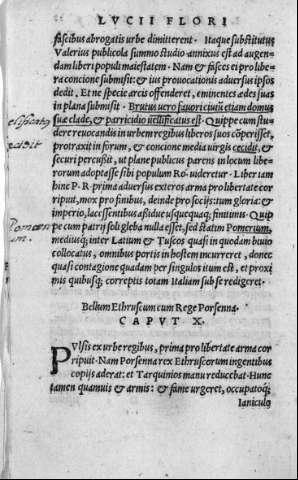 LVCII FLORI
fascibus abrogatis urbe dimitterent · Itaque substitutus
Valerius publicola summo studio annixus est ad augen-
dam liberi populi maiestatem · Nam & fasces ei pro libe-
ra concione submisit: & ius prouocationis aduersus ipsos
dedit · Et ne specie arcis offenderet, eminentes ædes suas
in plana submisit · Brutus uero fauori ciuiũ etiam domus
suæ clade, & parricidio uelificatus est · Quippe cum stu-
dere reuocandis in urbem regibus liberos suos cõperisset,
protraxit in forum, & concione media uirgis cecidit, &
securi percussit, ut plane publicus parens in locum libe-
rorum adoptasse sibi populum Ro· uideretur · Liber iam
hinc P · R · prima aduersus exteros arma pro libertate cor
ripuit, mox pro finibus, deinde pro socijs: tum gloria: &
imperio, lacessentibus assidue usquequaq; finitimis · Quip
pe cum patrij soli gleba nulla esset, sed statim Pomerium,
mediusq; inter Latium & Tuscos quasi in quodam biuio
collocatus, omnibus portis in hostem incurreret, donec
quasi contagione quadam per singulos itum est, et proxi
mis quibusq; correptis totam Italiam sub se redigeret ·
Bellum Ethruscum cum Rege Porsenna ·
CAPVT X ·
PVlsis ex urbe regibus, prima pro libertate arma cor
ripuit · Nam Porsenna rex Ethruscorum ingentibus
copijs aderat: et Tarquinios manu reducebat · Hunc
tamen quamuis & armis: & fame urgeret, occupatoq;
Ianiculo